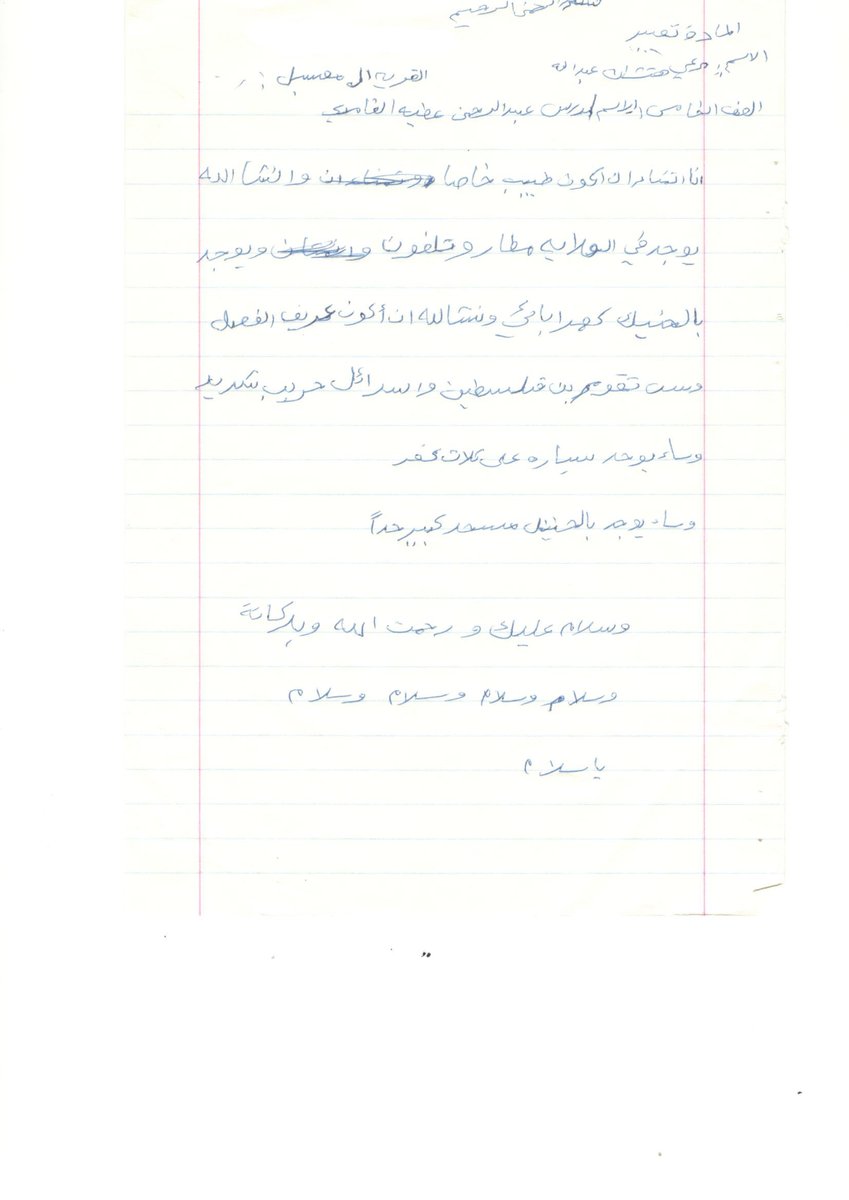 الرحمن الرحيم
المادة تعبير
الاسم عبدالله
القريه ال
الصف الخامس الاسم لمدرس عبدالرحمن عطيه الغامدي
انا ان اكون طبيب خاصا وانشا الله
يوجد في الولايه مطار وتلفون ويوجد
كهرا باءي ونشالله ان أكون عريف الفصل
وست تقوم بن فلسطين واسرائل حريب شديد
وساء يوجد سياره على كفر
وساء يوجد مسجد كبير جداً
وسلام عليك و رحمت الله وبركاتة
وسلام وسلام وسلام وسلام
ياسلام